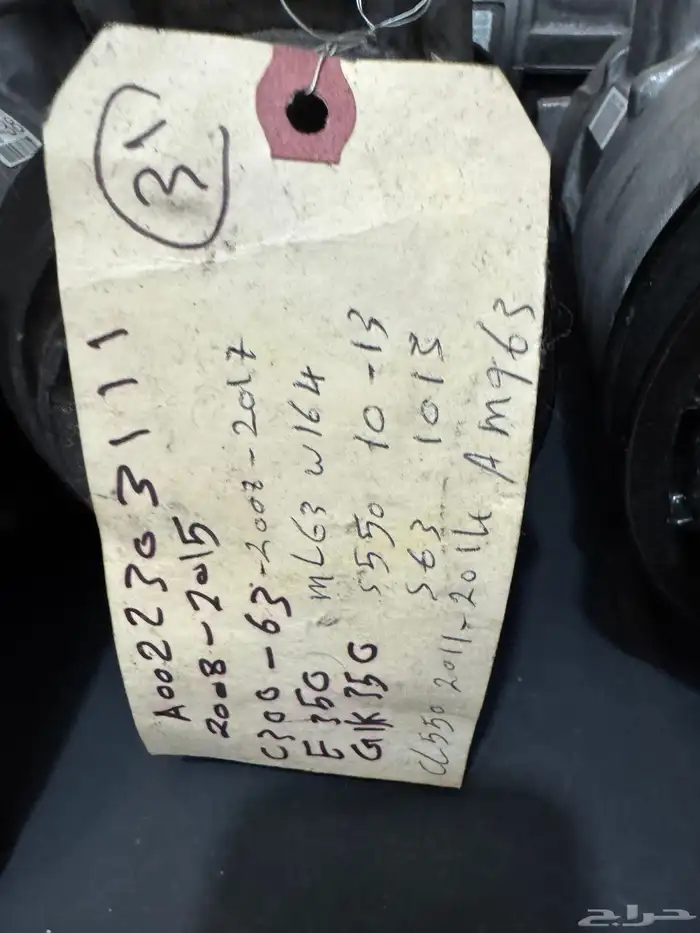 31
A0022303111
2008-2015
C300-63-2008-2017
E350 ML63 W164
GlK350 S550 10-13
S63 1013
Cl550 2011-2014 AMG63
حراج